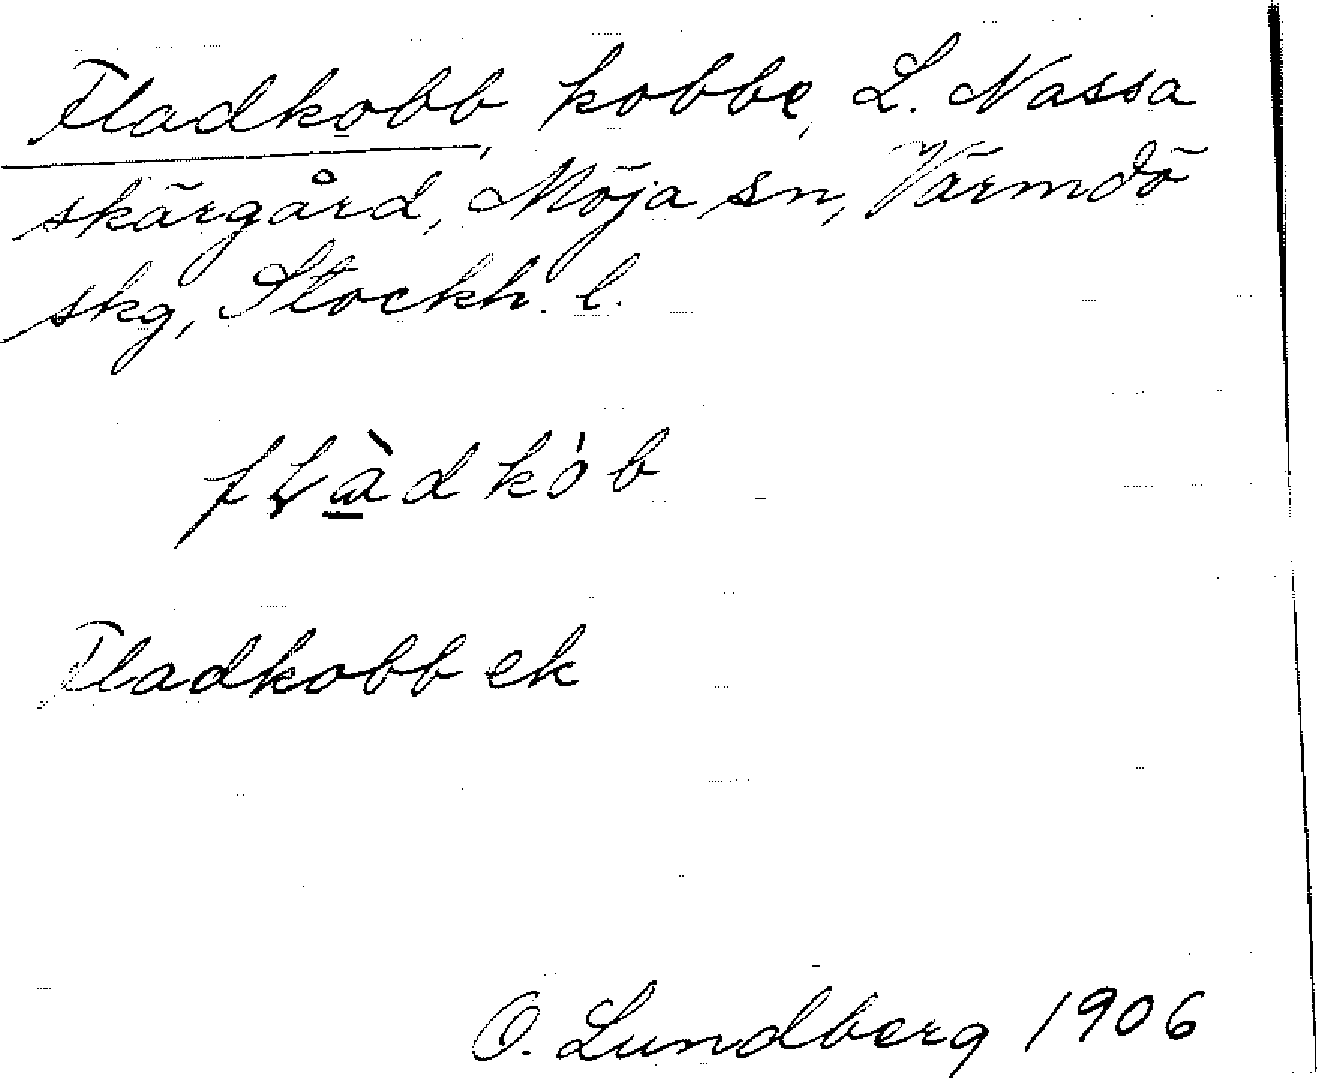 Fladkobb, kobbe, L. Nassa
skärgård, Möja sn, Värmdö
skg, Stockh. l.
fłàdkób
Fladkobb ek
O. Lundberg 1906